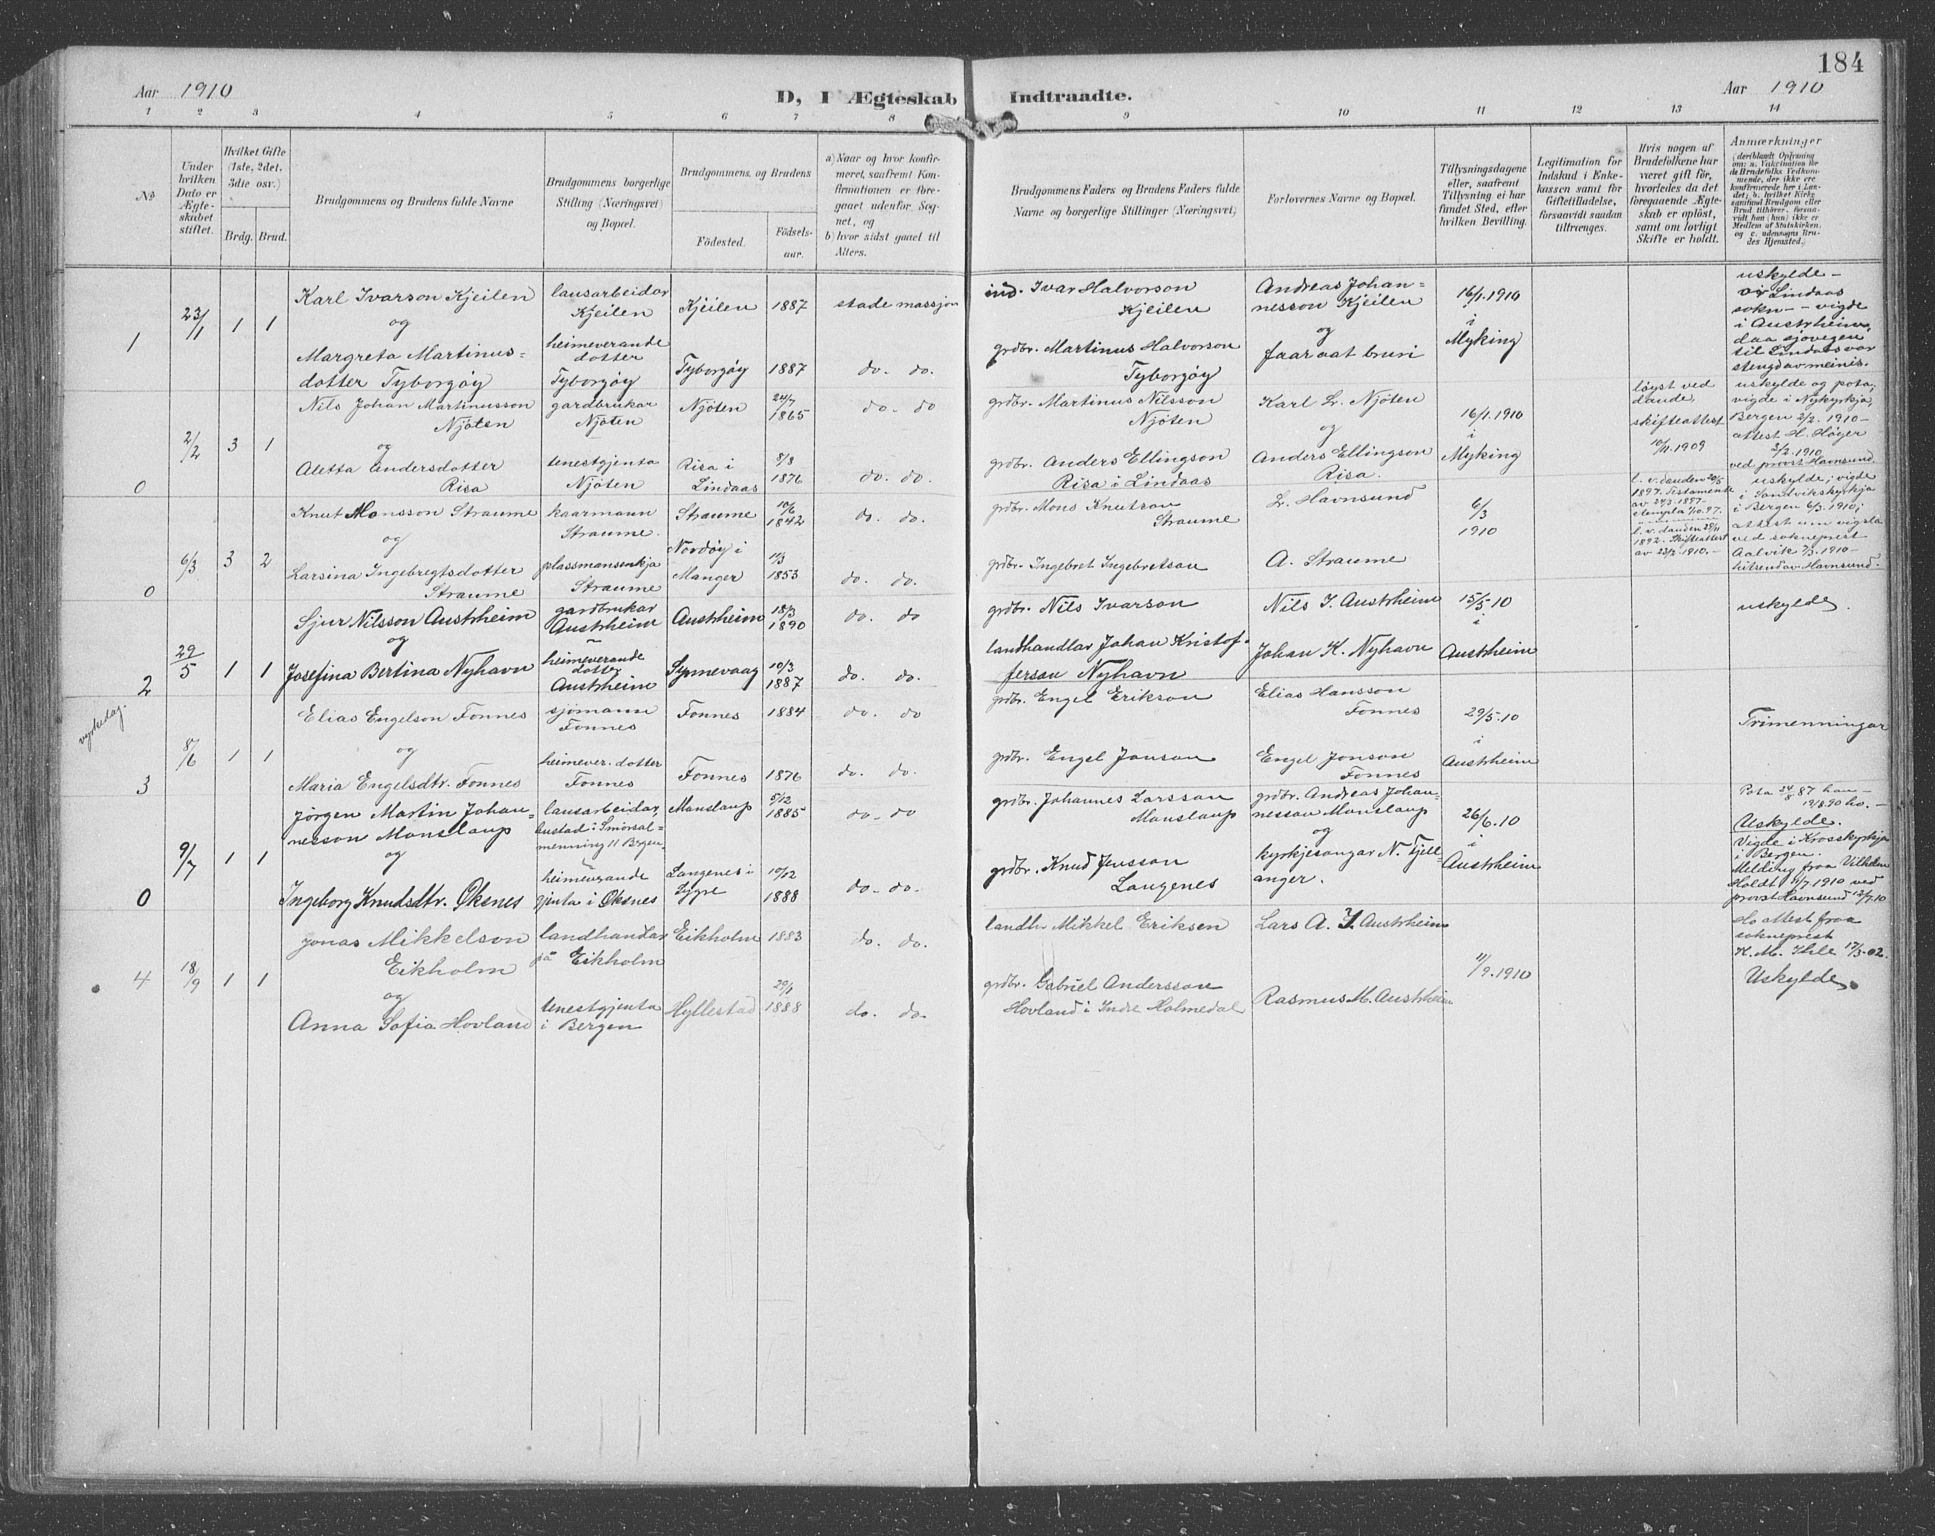 184
Aar 1910
D, I Ægteskab Indtraadte.
Aar 1910
1 2 3 4 5 6 7 8 9 10 11 12 13 14
No
Under hvilken Dato er Ægteskabet stiftet.
Hvilket Gifte (1ste, 2det, 3die osv.)
Brdg. Brud.
Brudgommens og Brudens fulde Navne
Brudgommens borgerlige Stilling (Næringsvei) og Bopæl.
Brudgommens og Brudens
Födested.
Födsels-aar.
a) Naar og hvor konfirmeret, saafremt Konfirmationen er foregaaet udenför Sognet, og
b) hvor sidst gaaet til Alters.
Brudgommens Faders og Brudens Faders fulde Navne og borgerlige Stillinger (Næringsvei)
Forlovernes Navne og Bopæl.
Tillysningsdagene eller, saafremt Tillysning ei har fundet Sted, efter hvilken Bevilling.
Legitimation for Indskud i Enkekassen samt for Giftetilladelse, forsaavidt saadan tiltrænges.
Hvis nogen af Brudefolkene har været gift för, hvorledes da det foregaaende Ægteskab er oplöst, samt om lovligt Skifte er holdt.
Anmærkninger
(deriblandt Oplysning om: a. Vaccination for de Brudefolks Vedkommende, der ikke ere konfirmerede her i Landet; b. hvilket Kirkesamfund Brudgom eller Brud tilhörer, forsaavidt han (hun) ikke er Medlem af Statskirken, og c. udensogns Brudes Hjemsted.)
1
23/1
1 1
Karl Ivarson Kjeilen
og
Margreta Martinus-
dotter Tyborgöy
lausarbeidar
Kjeilen
heimeverande
dotter
Tyborgöy
Kjeilen 1887
Tyborgöy 1887
stade massjon
do. do.
ind. Ivar Halvorson
Kjeilen
grdbr. Martinus Halvorson
Tyborgöy
Andreas Johan-
nesson Kjeilen
og
faar aat bruri
16/1.1910
i
Myking
uskylde -
av Lindaas
sokn - vigde
i Austrheim,
daa sjovegen
til Lindaas var
stengd av meinis.
0
2/2
3 1
Nils Johan Martinusson
Njöten
og
Aletta Andersdotter
Risa
gardbrukar
Njöten
tenestgjenta
Njöten
Njöten 24/7 1865
Risa i
Lindaas 8/8 1876
do. do
do. do.
grdbr. Martinus Nilsson
Njöten
grdbr. Anders Ellingson
Risa i Lindaas
Karl L. Njöten
og
Anders Ellingson
Risa.
16/1.1910
i
Myking
löyst ved
daude,
skifteattest
10/11.1909
uskylde og pota;
vigde i Nykyrkja,
Bergen 2/2. 1910 -
attest H. Höyer
3/2.1910
ved provst Havnsund.
0
6/3
3 2
Knut Monsson Straume
og
Larsina Ingebregtsdotter
Straume
kaarmann
Straume.
plassmansenkja
Straume
Straume 10/6 1842
Nordöy i
Manger 11/3 1853
do. do.
do. do.
grdbr. Mons Knutson
Straume
grdbr. Ingebret Ingebretson
L. Havnsund
A. Straume
6/3
1910
l. v. dauden 20/5
1897. Testamente
av 27/3.1897.
l. v. dauden 29/11
1892. Skifteattest
av 23/2.1910. -
uskylde; vigde
i Sandvikskyrkja
i Bergen 6/3.1910;
attest um vigsla
ved sokneprest
Aalvik 7/3.1910 -
hitsend av Havnsund.
2
29/5
1 1
Sjur Nilsson Austrheim
og
Josefina Bertina Nyhavn
gardbrukar
Austrheim
heimeverande
dotter
Austrheim
Austrheim 18/3 1890
Synnevaag 10/3 1887
do. do
do. do.
grdbr. Nils Ivarson
landhandlar Johan Kristof-
ferson Nyhavn
Nils I. Austrheim
Johan K. Nyhavn
15/5.10
i
Austrheim
uskylde.
vyrkedag.
3
8/6
1 1
Elias Engelson Fonnes
og
Maria Engelsdtr. Fonnes
sjömann
Fonnes
heimever. dotter
Fonnes
Fonnes 1884
Fonnes 1876
do. do
do. do.
grdbr. Engel Erikson
grdbr. Engel Jonson
Elias Hansson
Fonnes
Engel Jonson
Fonnes
29/5.10
i
Austrheim
Trimenningar
0
9/7
1 1
Jörgen Martin Johan-
nesson Monslaup
og
Ingeborg Knudsdtr. Öksnes
lausarbeidar,
bustad: Smörsal-
menning 11 Bergen.
heimeverande
gjenta i Öksnes
Monslaup 5/12 1885
Langenes i
Lygre 10/12 1888
do - do
do - do.
grdbr. Johannes Larsson
Monslaup
grdbr. Knud Jensson
Langenes
grdbr. Andreas Johan-
nesson Monslaup
og
kyrkjesongar N. Fjell-
anger.
26/6.10
i
Austrheim
Pota 24/8 87 han -
19/8.90 ho. -
Uskylde.
Vigde i Krosskyrkja
i Bergen.
Melding fraa Vilhelm
Holdt 11/7.1910 ved
provst Havnsund 12/7.10
4
18/9
1 1
Jonas Mikkelson
Eikholm
og
Anna Sofia Hovland
landhandlar
på Eikholm
tenestgjenta
i Bergen
Eikholm 1883
Hyllestad 29/1 1888
do. do.
do. do.
landh. Mikkel Eriksen
grdbr. Gabriel Andersson
Hovland i Indre Holmedal
Lars A. I. Austrheim
Rasmus M. Austrheim
11/9.1910
Ho attest fraa
sokneprest
H. M. Ihle 17/5.02.
Uskylde.